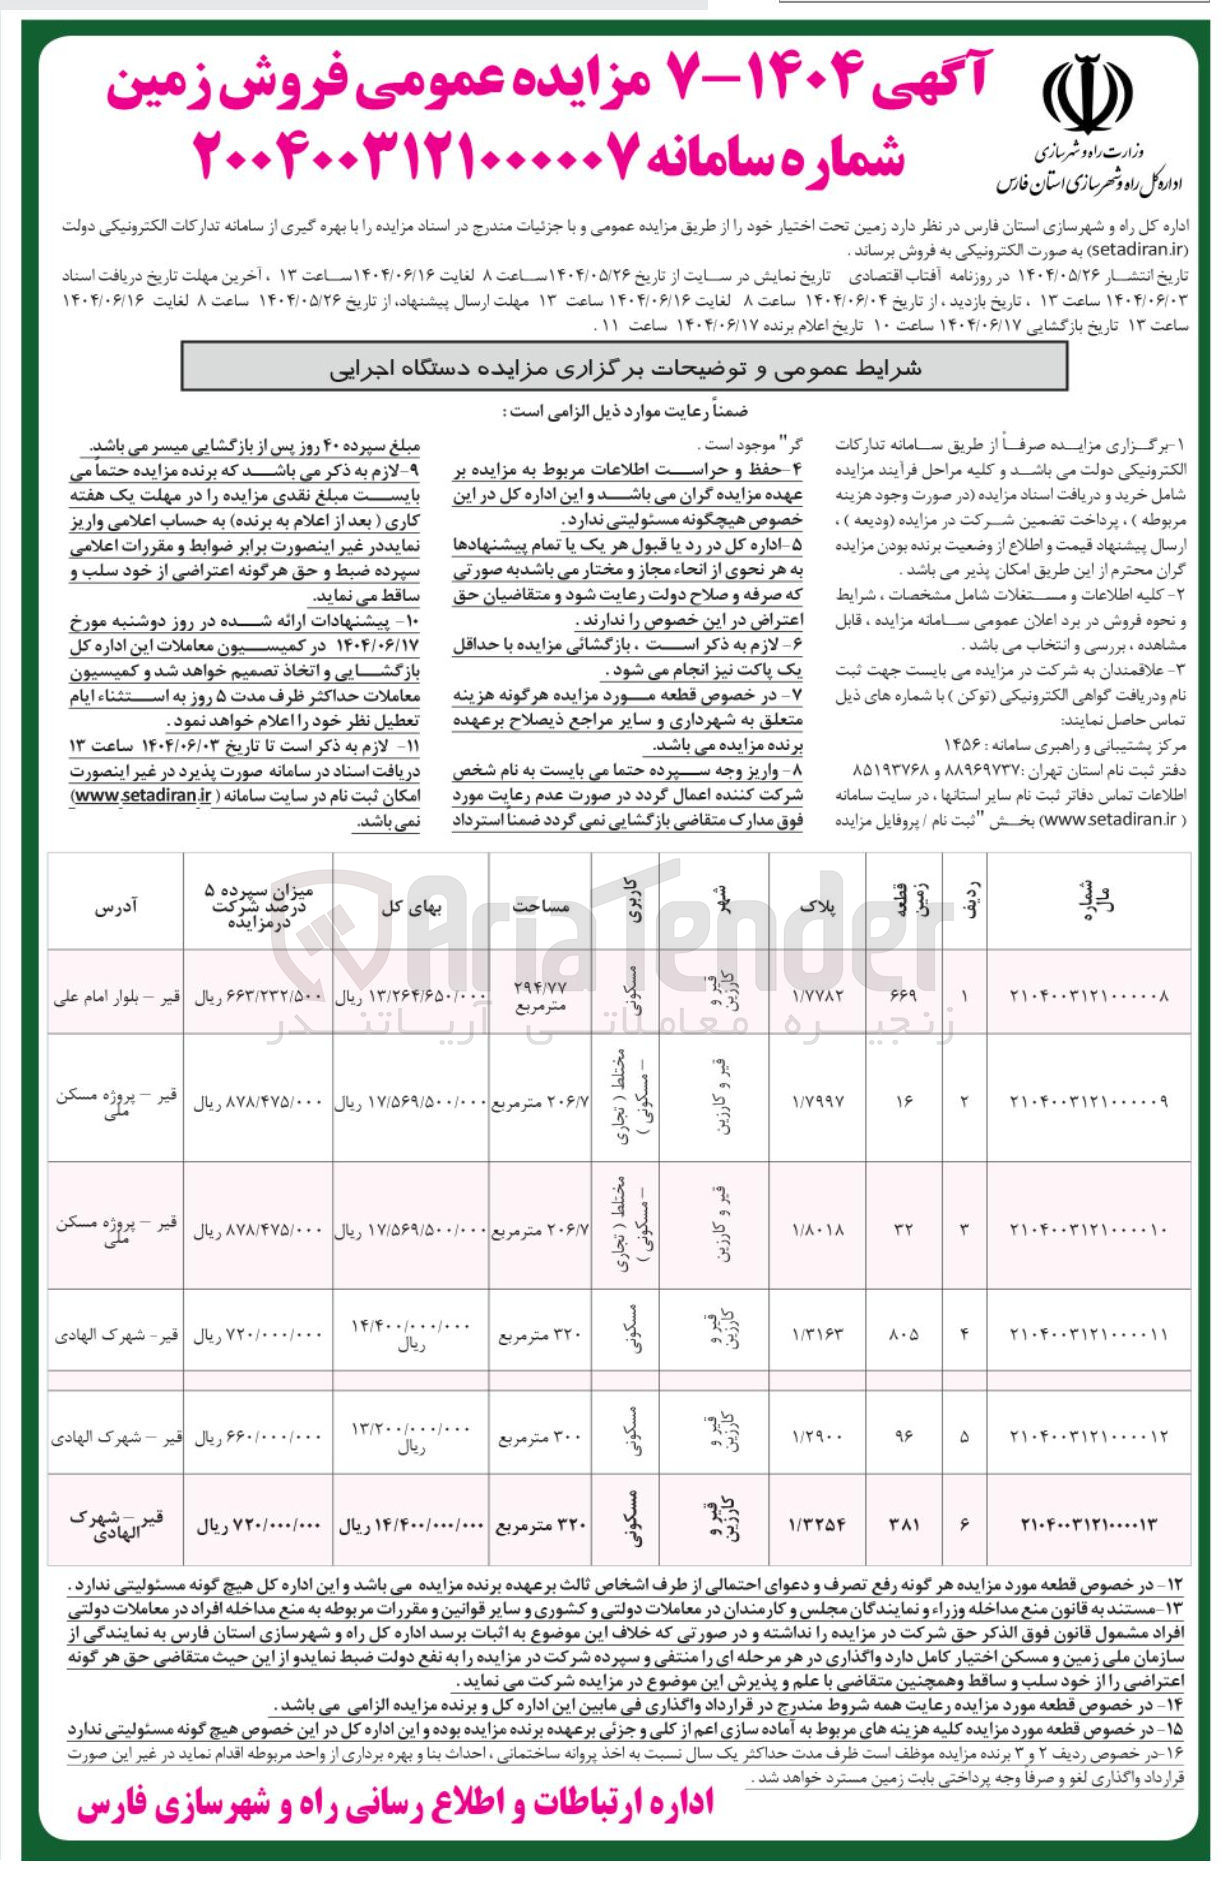 آگهی ۱۴۰۴-۷ مزایده عمومی فروش زمین
شماره سامانه ۲۰۰۴۰۰۳۱۲۱۰۰۰۰۰۷
وزارت راه و شهرسازی
اداره کل راه و شهرسازی استان فارس
اداره کل راه و شهرسازی استان فارس در نظر دارد زمین تحت اختیار خود را از طریق مزایده عمومی و با جزئیات مندرج در اسناد مزایده را با بهره گیری از سامانه تدارکات الکترونیکی دولت
(setadiran.ir) به صورت الکترونیکی به فروش برساند .
تاریخ انتشار ۱۴۰۴/۰۵/۲۶ در روزنامه آفتاب اقتصادی تاریخ نمایش در سایت از تاریخ ۱۴۰۴/۰۵/۲۶ساعت ۸ لغایت ۱۴۰۴/۰۶/۱۶ساعت ۱۳ ، آخرین مهلت تاریخ دریافت اسناد
۱۴۰۴/۰۶/۰۳ ساعت ۱۳ ، تاریخ بازدید ، از تاریخ ۱۴۰۴/۰۶/۰۴ ساعت ۸ لغایت ۱۴۰۴/۰۶/۱۶ ساعت ۱۳ مهلت ارسال پیشنهاد، از تاریخ ۱۴۰۴/۰۵/۲۶ ساعت ۸ لغایت ۱۴۰۴/۰۶/۱۶
ساعت ۱۳ تاریخ بازگشایی ۱۴۰۴/۰۶/۱۷ ساعت ۱۰ تاریخ اعلام برنده ۱۴۰۴/۰۶/۱۷ ساعت ۱۱ .
شرایط عمومی و توضیحات برگزاری مزایده دستگاه اجرایی
ضمناً رعایت موارد ذیل الزامی است :
۱-برگزاری مزایده صرفاً از طریق سامانه تدارکات
الکترونیکی دولت می باشد و کلیه مراحل فرآیند مزایده
شامل خرید و دریافت اسناد مزایده (در صورت وجود هزینه
مربوطه ) ، پرداخت تضمین شرکت در مزایده (ودیعه ) ،
ارسال پیشنهاد قیمت و اطلاع از وضعیت برنده بودن مزایده
گران محترم از این طریق امکان پذیر می باشد .
۲- کلیه اطلاعات و مستغلات شامل مشخصات ، شرایط
و نحوه فروش در برد اعلان عمومی سامانه مزایده ، قابل
مشاهده ، بررسی و انتخاب می باشد .
۳- علاقمندان به شرکت در مزایده می بایست جهت ثبت
نام ودریافت گواهی الکترونیکی (توکن ) با شماره های ذیل
تماس حاصل نمایند:
مرکز پشتیبانی و راهبری سامانه : ۱۴۵۶
دفتر ثبت نام استان تهران :۸۸۹۶۹۷۳۷ و ۸۵۱۹۳۷۶۸
اطلاعات تماس دفاتر ثبت نام سایر استانها ، در سایت سامانه
( www.setadiran.ir) بخش "ثبت نام / پروفایل مزایده
گر" موجود است .
۴-حفظ و حراست اطلاعات مربوط به مزایده بر
عهده مزایده گران می باشد و این اداره کل در این
خصوص هیچگونه مسئولیتی ندارد .
۵-اداره کل در رد یا قبول هر یک یا تمام پیشنهادها
به هر نحوی از انحاء مجاز و مختار می باشدبه صورتی
که صرفه و صلاح دولت رعایت شود و متقاضیان حق
اعتراض در این خصوص را ندارند .
۶- لازم به ذکر است ، بازگشائی مزایده با حداقل
یک پاکت نیز انجام می شود .
۷- در خصوص قطعه مورد مزایده هرگونه هزینه
متعلق به شهرداری و سایر مراجع ذیصلاح برعهده
برنده مزایده می باشد.
۸- واریز وجه سپرده حتما می بایست به نام شخص
شرکت کننده اعمال گردد در صورت عدم رعایت مورد
فوق مدارک متقاضی بازگشایی نمی گردد ضمناً استرداد
مبلغ سپرده ۴۰ روز پس از بازگشایی میسر می باشد.
۹-لازم به ذکر می باشد که برنده مزایده حتماً می
بایست مبلغ نقدی مزایده را در مهلت یک هفته
کاری ( بعد از اعلام به برنده) به حساب اعلامی واریز
نمایددر غیر اینصورت برابر ضوابط و مقررات اعلامی
سپرده ضبط و حق هرگونه اعتراضی از خود سلب و
ساقط می نماید.
۱۰- پیشنهادات ارائه شده در روز دوشنبه مورخ
۱۴۰۴/۰۶/۱۷ در کمیسیون معاملات این اداره کل
بازگشایی و اتخاذ تصمیم خواهد شد و کمیسیون
معاملات حداکثر ظرف مدت ۵ روز به استثناء ایام
تعطیل نظر خود را اعلام خواهد نمود .
۱۱- لازم به ذکر است تا تاریخ ۱۴۰۴/۰۶/۰۳ ساعت ۱۳
دریافت اسناد در سامانه صورت پذیرد در غیر اینصورت
امکان ثبت نام در سایت سامانه ( www.setadiran.ir)
نمی باشد.
شماره مال ردیف قطعه زمین پلاک شهر کاربری مساحت بهای کل میزان سپرده ۵ درصد شرکت درمزایده آدرس
۲۱۰۴۰۰۳۱۲۱۰۰۰۰۰۸ ۱ ۶۶۹ ۱/۷۷۸۲ قیر و کارزین مسکونی ۲۹۴/۷۷ مترمربع ۱۳/۲۶۴/۶۵۰/۰۰۰ ریال ۶۶۳/۲۳۲/۵۰۰ ریال قیر – بلوار امام علی
۲۱۰۴۰۰۳۱۲۱۰۰۰۰۰۹ ۲ ۱۶ ۱/۷۹۹۷ قیر و کارزین مختلط ( تجاری – مسکونی ) ۲۰۶/۷ مترمربع ۱۷/۵۶۹/۵۰۰/۰۰۰ ریال ۸۷۸/۴۷۵/۰۰۰ ریال قیر – پروژه مسکن ملی
۲۱۰۴۰۰۳۱۲۱۰۰۰۰۱۰ ۳ ۳۲ ۱/۸۰۱۸ قیر و کارزین مختلط ( تجاری – مسکونی ) ۲۰۶/۷ مترمربع ۱۷/۵۶۹/۵۰۰/۰۰۰ ریال ۸۷۸/۴۷۵/۰۰۰ ریال قیر – پروژه مسکن ملی
۲۱۰۴۰۰۳۱۲۱۰۰۰۰۱۱ ۴ ۸۰۵ ۱/۳۱۶۳ قیر و کارزین مسکونی ۳۲۰ مترمربع ۱۴/۴۰۰/۰۰۰/۰۰۰ ریال ۷۲۰/۰۰۰/۰۰۰ ریال قیر- شهرک الهادی
۲۱۰۴۰۰۳۱۲۱۰۰۰۰۱۲ ۵ ۹۶ ۱/۲۹۰۰ قیر و کارزین مسکونی ۳۰۰ مترمربع ۱۳/۲۰۰/۰۰۰/۰۰۰ ریال ۶۶۰/۰۰۰/۰۰۰ ریال قیر – شهرک الهادی
۲۱۰۴۰۰۳۱۲۱۰۰۰۰۱۳ ۶ ۳۸۱ ۱/۳۲۵۴ قیر و کارزین مسکونی ۳۲۰ مترمربع ۱۴/۴۰۰/۰۰۰/۰۰۰ ریال ۷۲۰/۰۰۰/۰۰۰ ریال قیر – شهرک الهادی
AriaTender
زنجیره معاملاتی آریاتندر
۱۲- در خصوص قطعه مورد مزایده هر گونه رفع تصرف و دعوای احتمالی از طرف اشخاص ثالث برعهده برنده مزایده می باشد و این اداره کل هیچ گونه مسئولیتی ندارد .
۱۳-مستند به قانون منع مداخله وزراء و نمایندگان مجلس و کارمندان در معاملات دولتی و کشوری و سایر قوانین و مقررات مربوطه به منع مداخله افراد در معاملات دولتی
افراد مشمول قانون فوق الذکر حق شرکت در مزایده را نداشته و در صورتی که خلاف این موضوع به اثبات برسد اداره کل راه و شهرسازی استان فارس به نمایندگی از
سازمان ملی زمین و مسکن اختیار کامل دارد واگذاری در هر مرحله ای را منتفی و سپرده شرکت در مزایده را به نفع دولت ضبط نمایدو از این حیث متقاضی حق هر گونه
اعتراضی را از خود سلب و ساقط وهمچنین متقاضی با علم و پذیرش این موضوع در مزایده شرکت می نماید .
۱۴- در خصوص قطعه مورد مزایده رعایت همه شروط مندرج در قرارداد واگذاری فی مابین این اداره کل و برنده مزایده الزامی می باشد .
۱۵- در خصوص قطعه مورد مزایده کلیه هزینه های مربوط به آماده سازی اعم از کلی و جزئی برعهده برنده مزایده بوده و این اداره کل در این خصوص هیچ گونه مسئولیتی ندارد
۱۶-در خصوص ردیف ۲ و ۳ برنده مزایده موظف است ظرف مدت حداکثر یک سال نسبت به اخذ پروانه ساختمانی ، احداث بنا و بهره برداری از واحد مربوطه اقدام نماید در غیر این صورت
قرارداد واگذاری لغو و صرفاً وجه پرداختی بابت زمین مسترد خواهد شد .
اداره ارتباطات و اطلاع رسانی راه و شهرسازی فارس